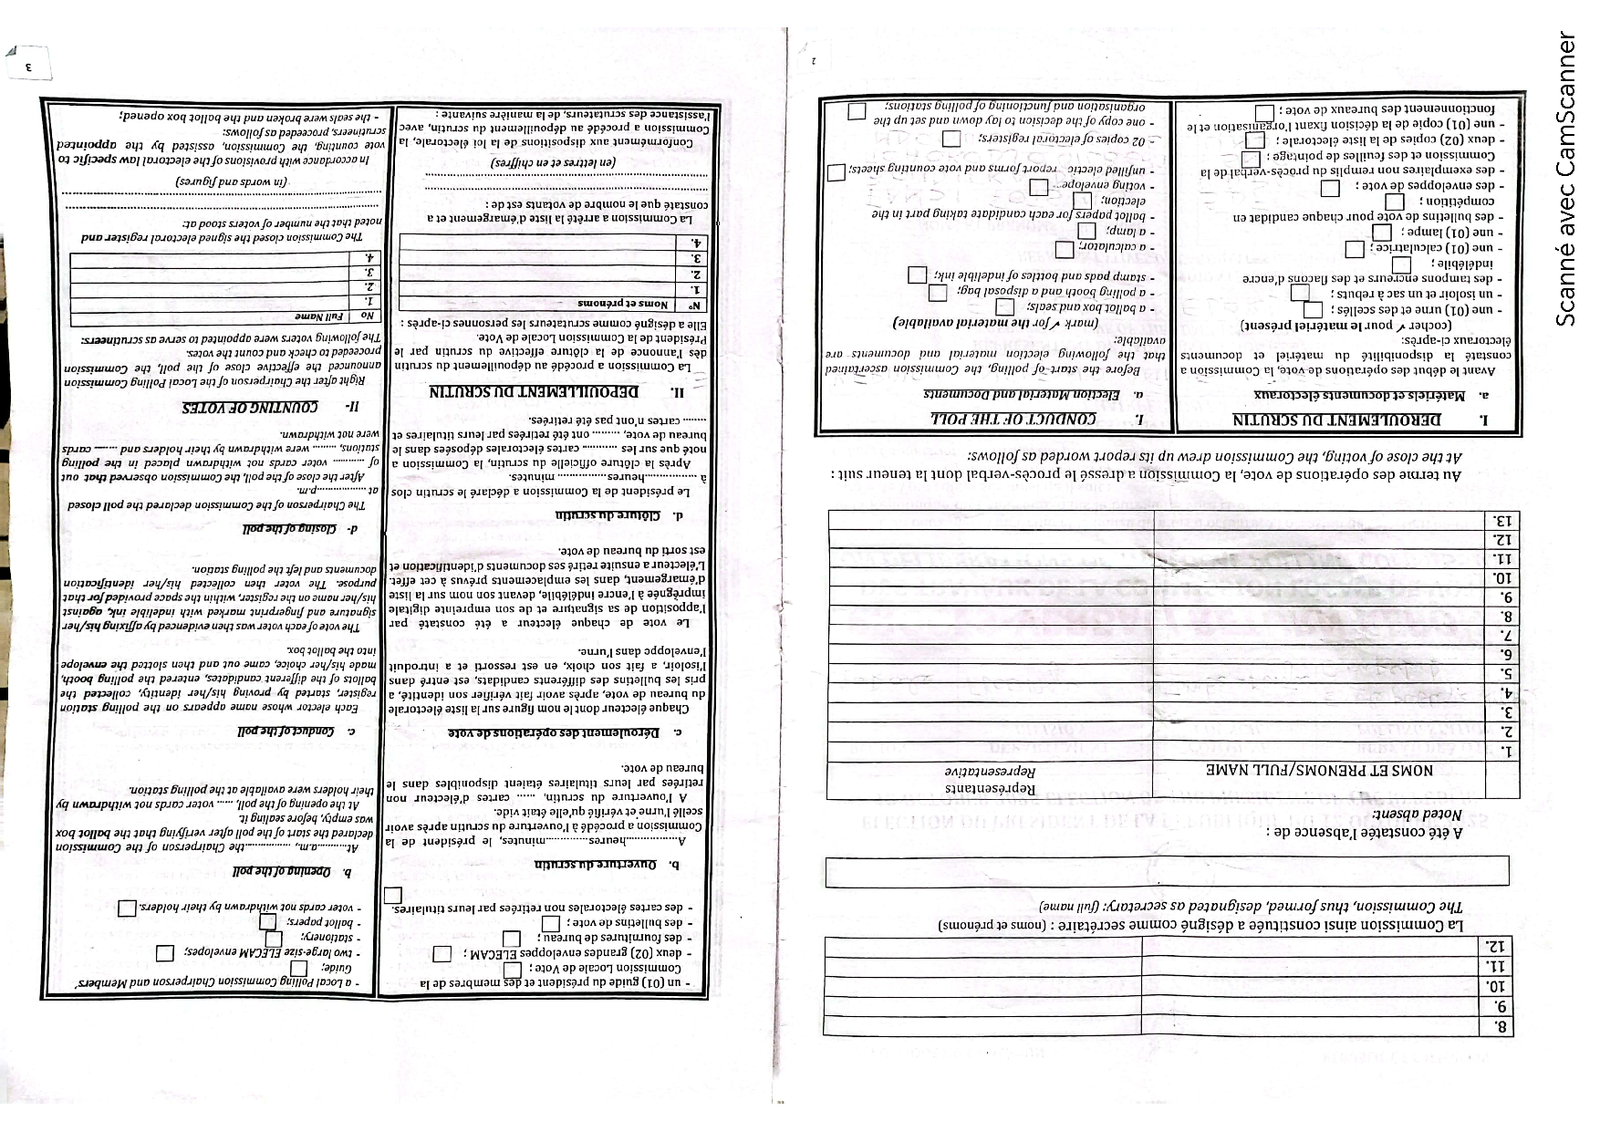 8.
9.
10.
11.
12.
La Commission ainsi constituée a désigné comme secrétaire : (noms et prénoms)
The Commission, thus formed, designated as secretary: (full name)
A été constatée l'absence de :
Noted absent:
NOMS ET PRENOMS/FULL NAME
Représentants
Representative
1.
2.
3.
4.
5.
6.
7.
8.
9.
10.
11.
12.
13.
Au terme des opérations de vote, la Commission a dressé le procès-verbal dont la teneur suit :
At the close of voting, the Commission drew up its report worded as follows:
I. DEROULEMENT DU SCRUTIN
a. Matériels et documents électoraux
Avant le début des opérations de vote, la Commission a
constaté la disponibilité du matériel et documents
électoraux ci-après:
(cocher ✓ pour le matériel présent)
- une (01) urne et des scellés ;
- un isoloir et un sac à rebuts ;
- des tampons encreurs et des flacons d'encre
indélébile ;
- une (01) calculatrice ;
- une (01) lampe ;
- des bulletins de vote pour chaque candidat en
compétition ;
- des enveloppes de vote ;
- des exemplaires non remplis du procès-verbal de la
Commission et des feuilles de pointage ;
- deux (02) copies de la liste électorale ;
- une (01) copie de la décision fixant l'organisation et le
fonctionnement des bureaux de vote ;
I. CONDUCT OF THE POLL
a. Election Material and Documents
Before the start of polling, the Commission ascertained
that the following election material and documents are
available:
(mark ✓ for the material available)
- a ballot box and seals;
- a polling booth and a disposal bag;
- stamp pads and bottles of indelible ink;
- a calculator;
- a lamp;
- ballot papers for each candidate taking part in the
election;
- voting envelope
- unfilled electic report forms and vote counting sheets;
- 02 copies of electoral registers;
- one copy of the decision to lay down and set up the
organisation and functioning of polling stations;
2
- un (01) guide du président et des membres de la
Commission Locale de Vote ;
- deux (02) grandes enveloppes ELECAM ;
- des fournitures de bureau ;
- des bulletins de vote ;
- des cartes électorales non retirées par leurs titulaires.
b. Ouverture du scrutin
A............heures............minutes, le président de la
Commission a procédé à l'ouverture du scrutin après avoir
scellé l'urne et vérifié qu'elle était vide.
A l'ouverture du scrutin, ...... cartes d'électeur non
retirées par leurs titulaires étaient disponibles dans le
bureau de vote.
c. Déroulement des opérations de vote
Chaque électeur dont le nom figure sur la liste électorale
du bureau de vote, après avoir fait vérifier son identité, a
pris les bulletins des différents candidats, est entré dans
l'isoloir, a fait son choix, en est ressorti et a introduit
l'enveloppe dans l'urne.
Le vote de chaque électeur a été constaté par
l'apposition de sa signature et de son empreinte digitale
imprégnée à l'encre indélébile, devant son nom sur la liste
d'émargement, dans les emplacements prévus à cet effet.
L'électeur a ensuite retiré ses documents d'identification et
est sorti du bureau de vote.
d. Clôture du scrutin
Le président de la Commission a déclaré le scrutin clos
à ............heures............ minutes.
Après la clôture officielle du scrutin, la Commission a
noté que sur les ......... cartes électorales déposées dans le
bureau de vote, ....... ont été retirées par leurs titulaires et
....... cartes n'ont pas été retirées.
II. DEPOUILLEMENT DU SCRUTIN
La Commission a procédé au dépouillement du scrutin
dès l'annonce de la clôture effective du scrutin par le
Président de la Commission Locale de Vote.
Elle a désigné comme scrutateurs les personnes ci-après :
N° Noms et prénoms
1.
2.
3.
4.
La Commission a arrêté la liste d'émargement et a
constaté que le nombre de votants est de :
(en lettres et en chiffres)
Conformément aux dispositions de la loi électorale, la
Commission a procédé au dépouillement du scrutin, avec
l'assistance des scrutateurs, de la manière suivante :
- a Local Polling Commission Chairperson and Members'
Guide;
- two large-size ELECAM envelopes;
- stationery;
- ballot papers;
- voter cards not withdrawn by their holders.
b. Opening of the poll
At.........a.m., ............the Chairperson of the Commission
declared the start of the poll after verifying that the ballot box
was empty, before sealing it.
At the opening of the poll, ...... voter cards not withdrawn by
their holders were available at the polling station.
c. Conduct of the poll
Each elector whose name appears on the polling station
register, started by proving his/her identity, collected the
ballots of the different candidates, entered the polling booth,
made his/her choice, came out and then slotted the envelope
into the ballot box.
The vote of each voter was then evidenced by affixing his/her
signature and fingerprint marked with indelible ink, against
his/her name on the register, within the space provided for that
purpose. The voter then collected his/her identification
documents and left the polling station.
d- Closing of the poll
The Chairperson of the Commission declared the poll closed
at ...............p.m.
After the close of the poll, the Commission observed that out
of ......... voter cards not withdrawn placed in the polling
stations, ....... were withdrawn by their holders and ....... cards
were not withdrawn.
II- COUNTING OF VOTES
Right after the Chairperson of the Local Polling Commission
announced the effective close of the poll, the Commission
proceeded to check and count the votes.
The following voters were appointed to serve as scrutineers:
No Full Name
1.
2.
3.
4.
The Commission closed the signed electoral register and
noted that the number of voters stood at:
(in words and figures)
In accordance with provisions of the electoral law specific to
vote counting, the Commission, assisted by the appointed
scrutineers, proceeded as follows:
- the seals were broken and the ballot box opened;
3
Scanné avec CamScanner